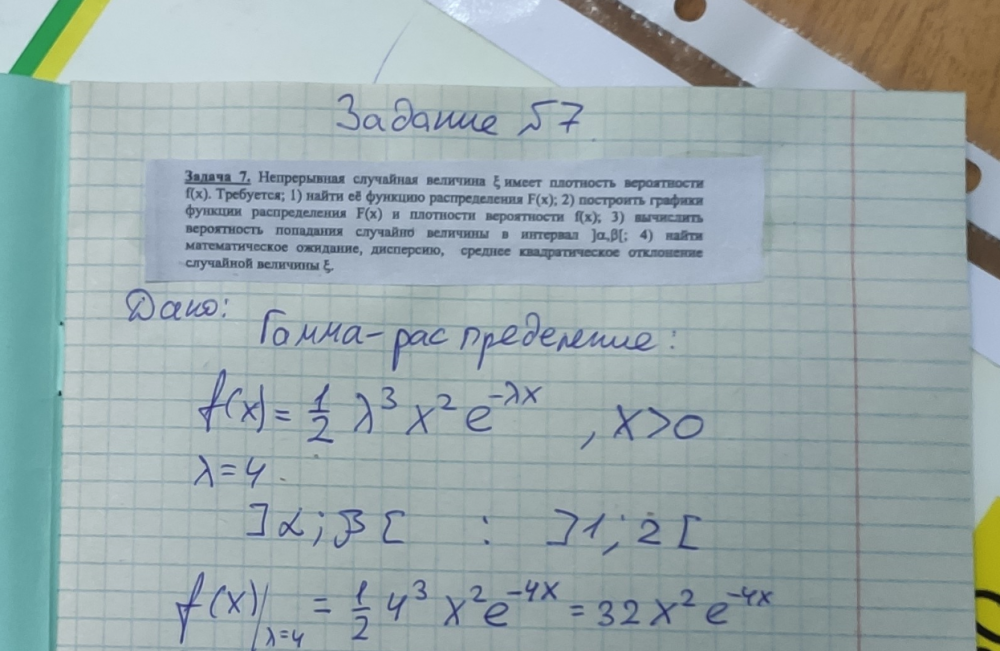 Задание №7
Задача 7. Непрерывная случайная величина ξ имеет плотность вероятности
f(x). Требуется; 1) найти её функцию распределения F(x); 2) построить графики
функции распределения F(x) и плотности вероятности f(x); 3) вычислить
вероятность попадания случайно величины в интервал ]α,β[; 4) найти
математическое ожидание, дисперсию, среднее квадратическое отклонение
случайной величины ξ.
Дано:
Гамма-распределение:
f(x) = 1/2 λ³ x² e^(-λx) , x>0
λ=4.
]α;β[ : ]1;2[
f(x)|λ=4 = 1/2 4³ x² e^(-4x) = 32 x² e^(-4x)